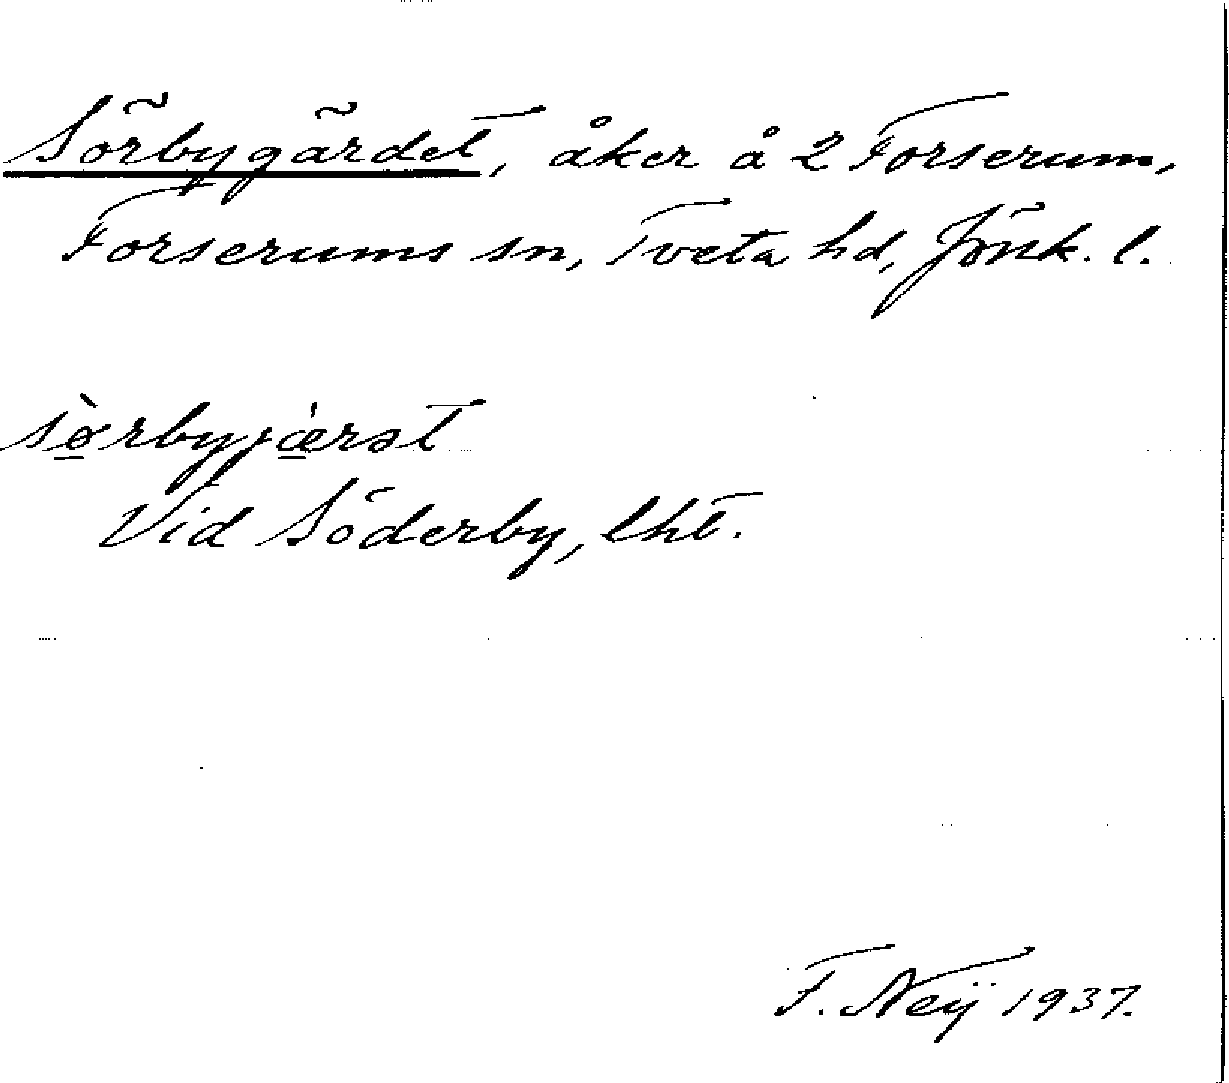 Sörbygärdet, åker å 2 Forserum,
Forserums sn, Tveta hd, Jönk. l.
sø̀rbyjæ̀rət
Vid Söderby, lht.
F. Neij 1937.